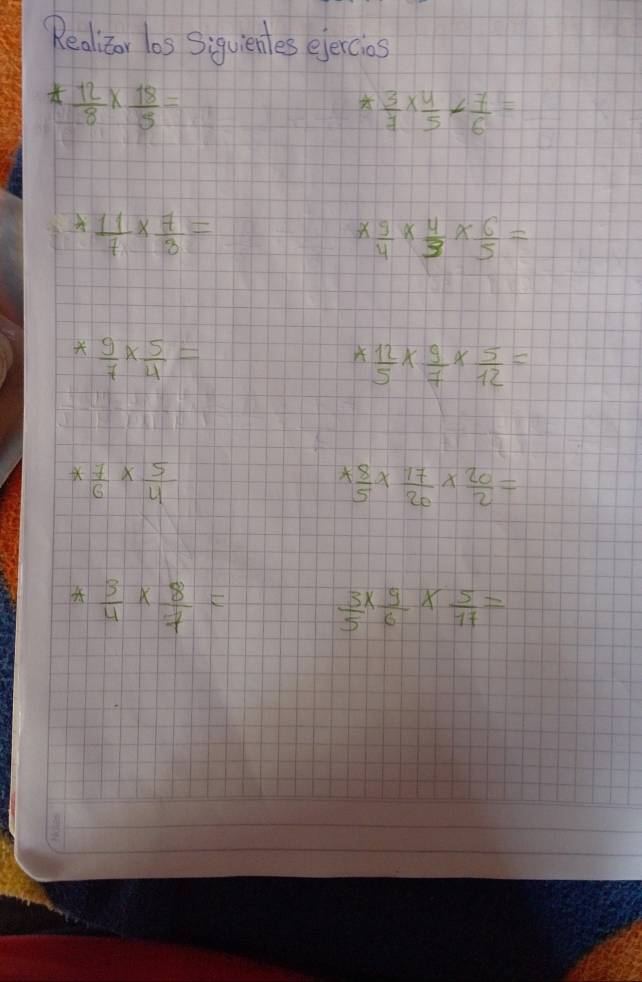 Realizar los Siguientes ejercios
* 12/8 x 18/5 =
* 3/7 x 4/5 x 7/6 =
* 11/7 x 7/3 =
* 9/4 x 4/3 x 6/5 =
* 9/7 x 5/4 =
* 12/5 x 9/7 x 5/12 =
* 7/6 x 5/4
* 8/5 x 17/20 x 20/2 =
* 3/4 x 8/7 =
3/5 x 9/6 x 5/17 =